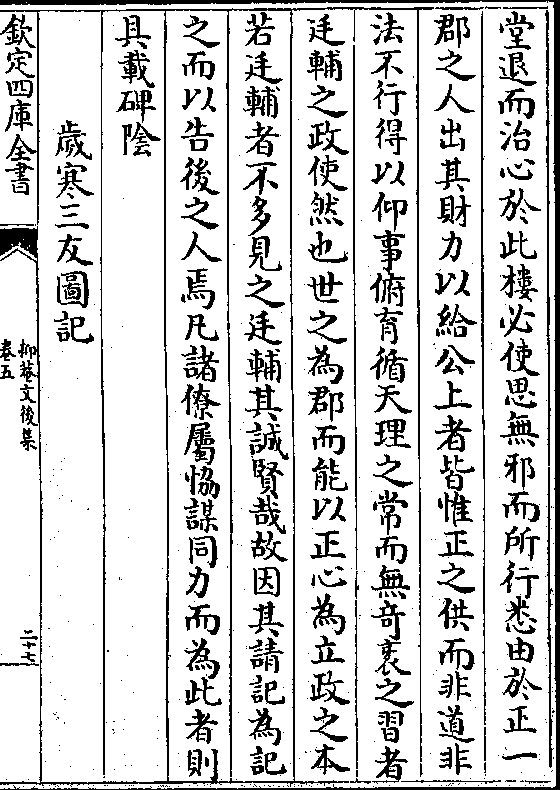 堂退而治心於此樓必使思無邪而所行悉由於正一
郡之人出其財力以給公上者皆惟正之供而非道非
法不行得以仰事俯育循天理之常而無竒衺之習者
廷輔之政使然也世之為郡而能以正心為立政之本
若廷輔者不多見之廷輔其誠賢哉故因其請記為記
之而以告後之人焉凡諸僚屬恊謀同力而為此者則
具載碑陰
歲寒三友圖記
欽定四庫全書
抑菴文後集
卷五
二十七